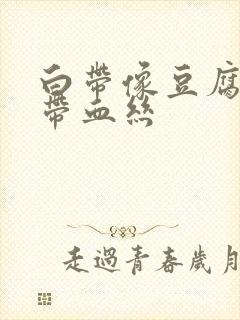 白帶像豆腐
帶血絲
走過青春歲月